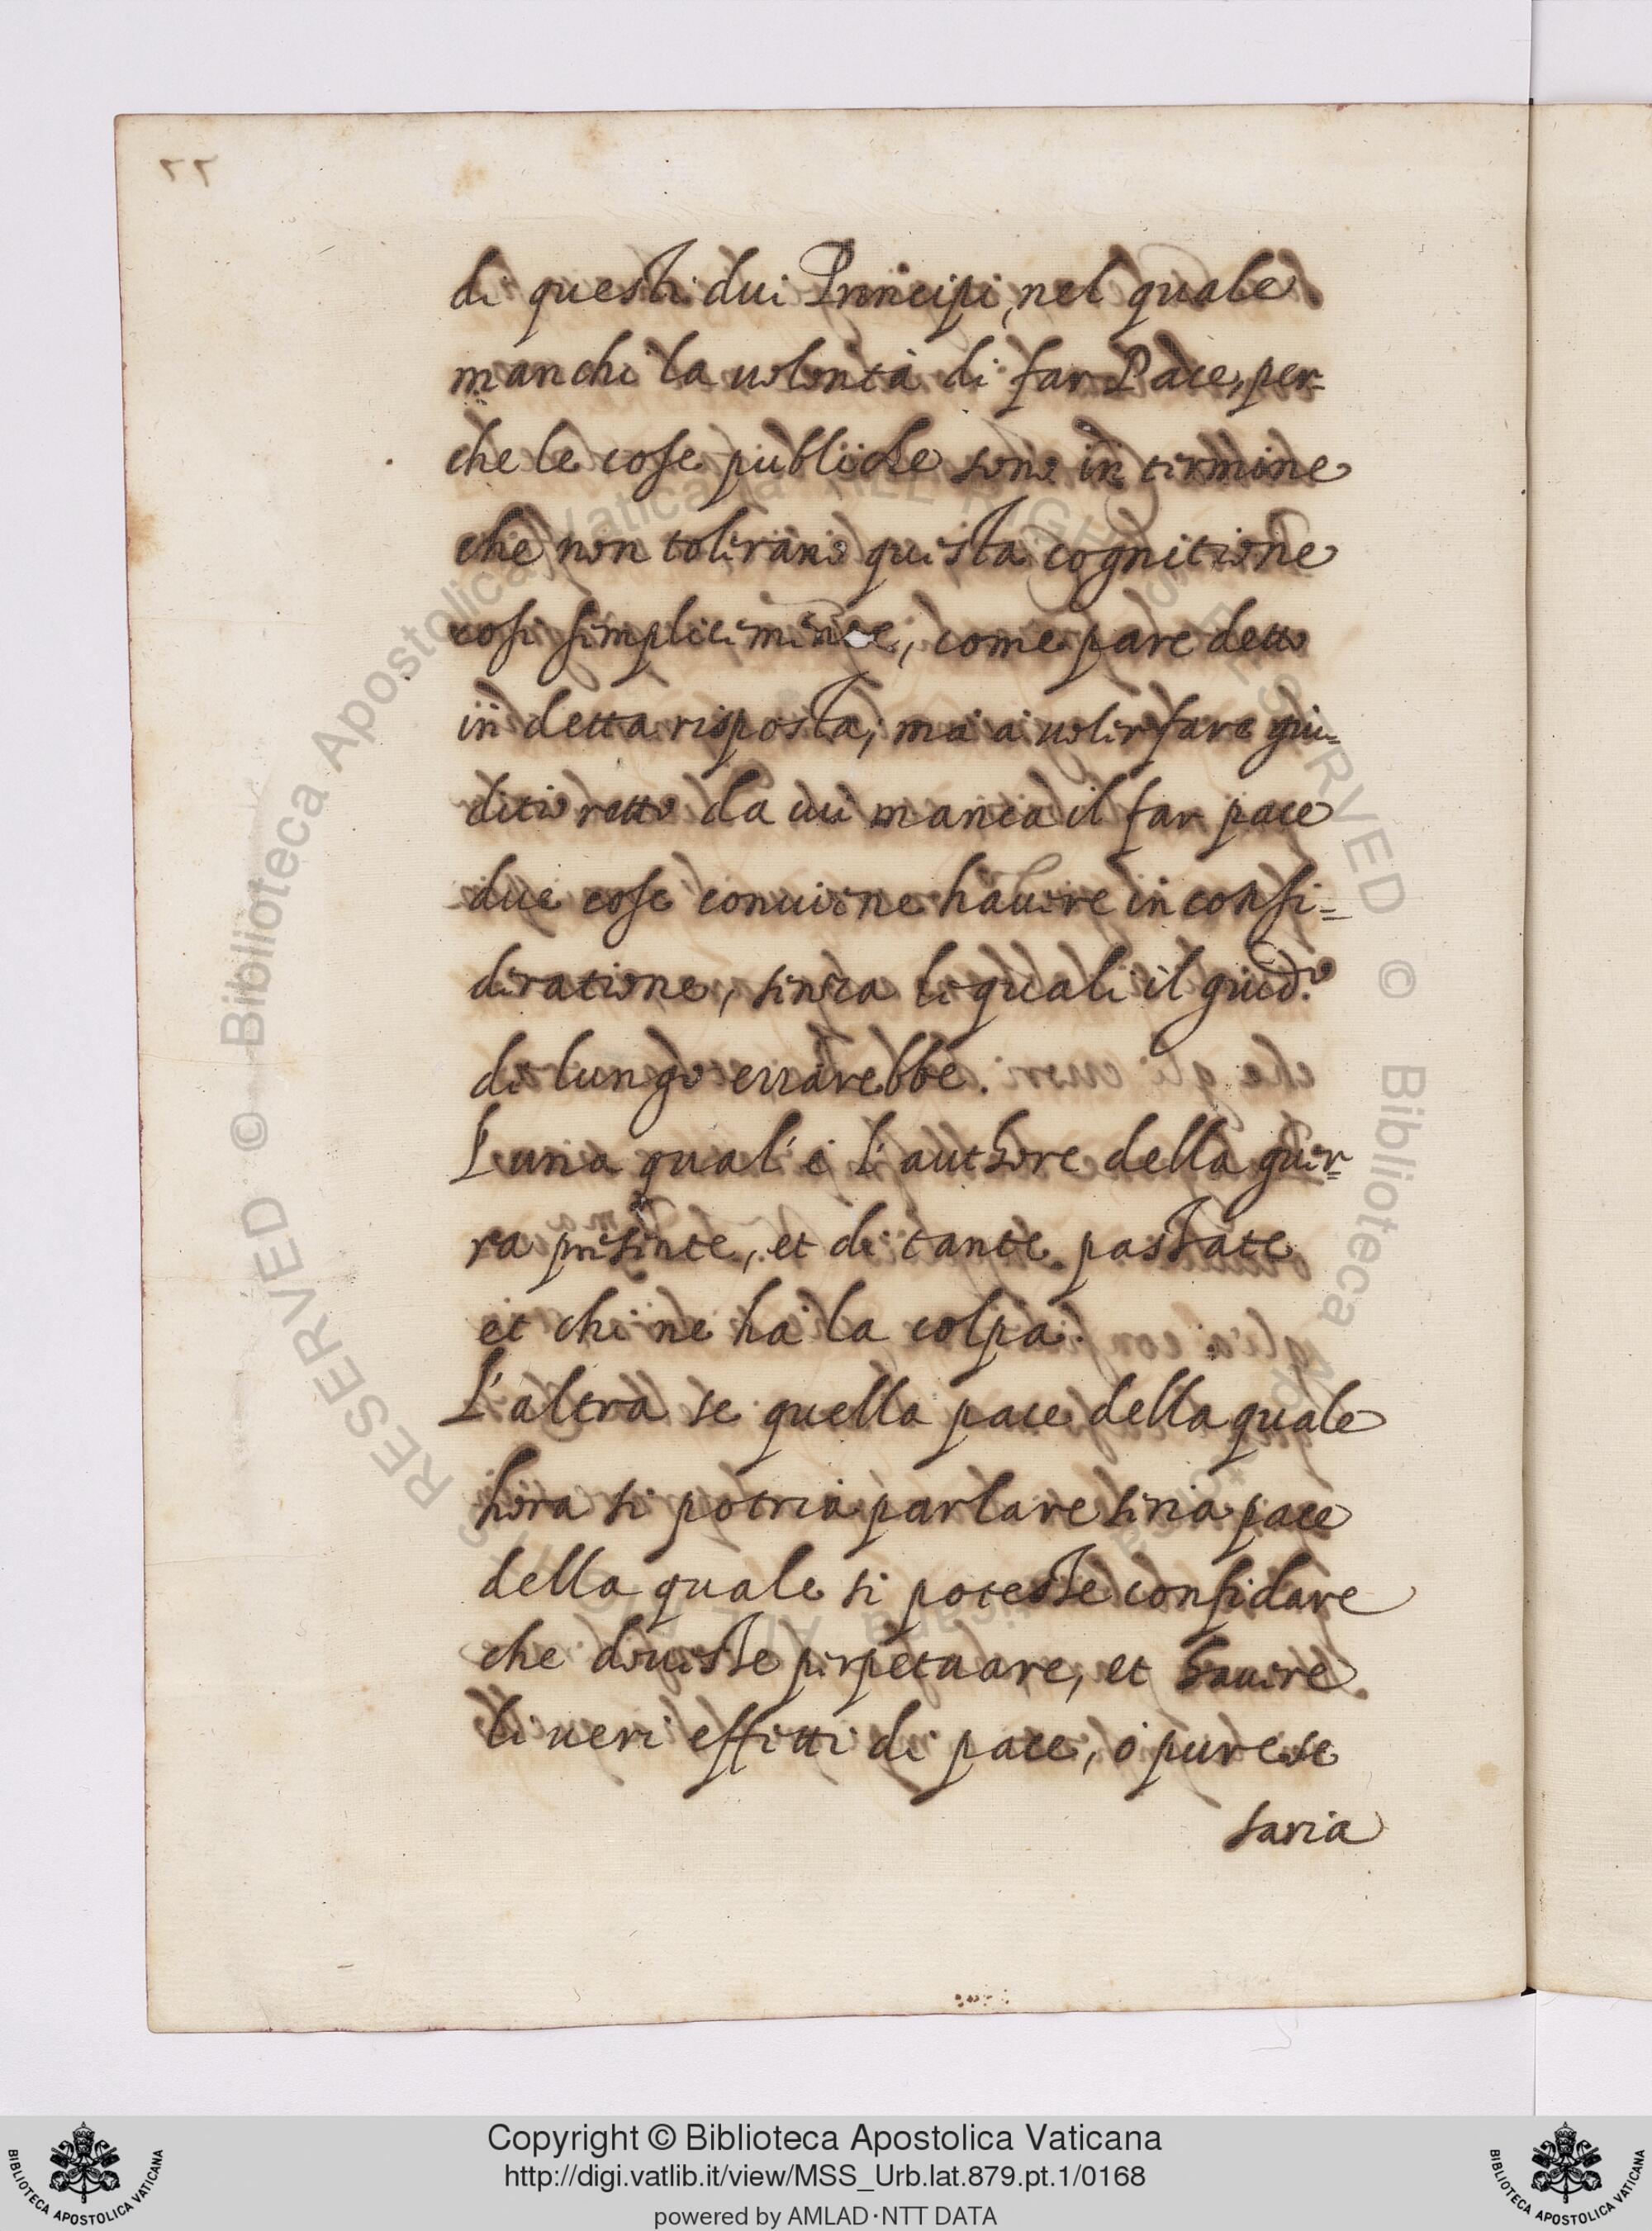 di questi dui Principi, nel quale
manchi la uolontà di far Pace, per-
che le cose publiche sono in termine
che non tolerano questa cognitione
cosi simplicemente, come pare detto
in detta risposta, ma à uoler fare giu-
ditio retto da cui manca il far pace
due cose conuiene hauere in consi=
deratione, senza le quali il giud.º
di lungo errarebbe.
L'una qual'è l'authore della guer-
ra presente, et di tante passate
et chi ne ha la colpa.
L'altra se quella pace della quale
hora si potria parlare seria pace
della quale si potesse confidare
che douesse perpetuare, et hauere
li ueri effetti di pace, ò pure se
saria
Copyright © Biblioteca Apostolica Vaticana
http://digi.vatlib.it/view/MSS_Urb.lat.879.pt.1/0168
powered by AMLAD·NTT DATA
BIBLIOTECA APOSTOLICA VATICANA
BIBLIOTECA APOSTOLICA VATICANA